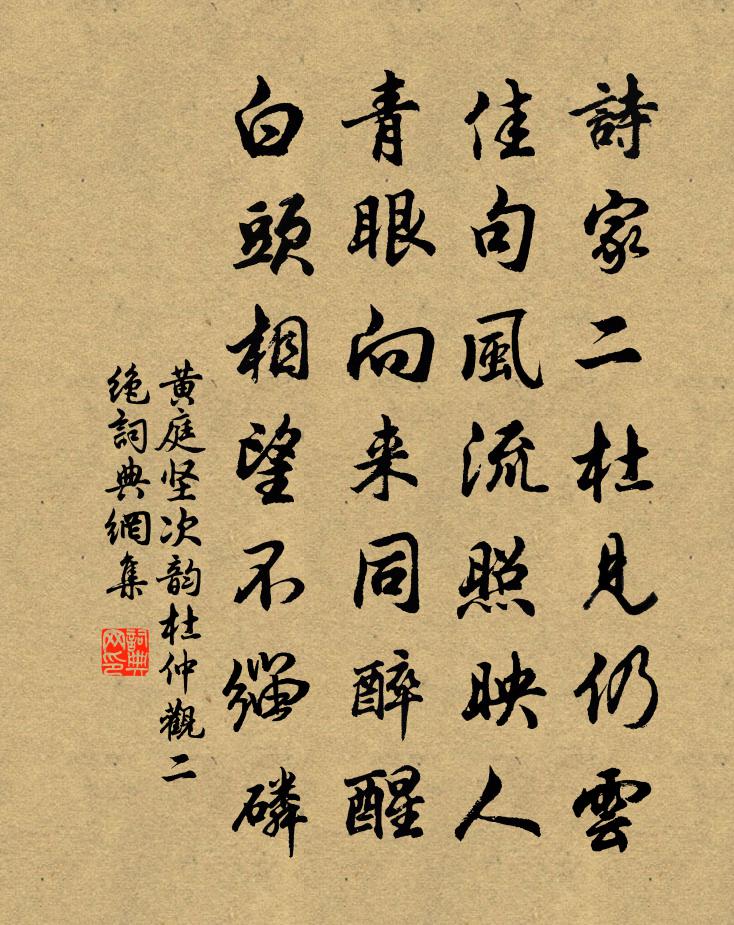 詩家二杜見仍雲
佳句風流照映人
青眼向来同醉醒
白頭相望不緇磷
黄庭坚次韵杜仲觀二
绝詞典網集
詞典网印